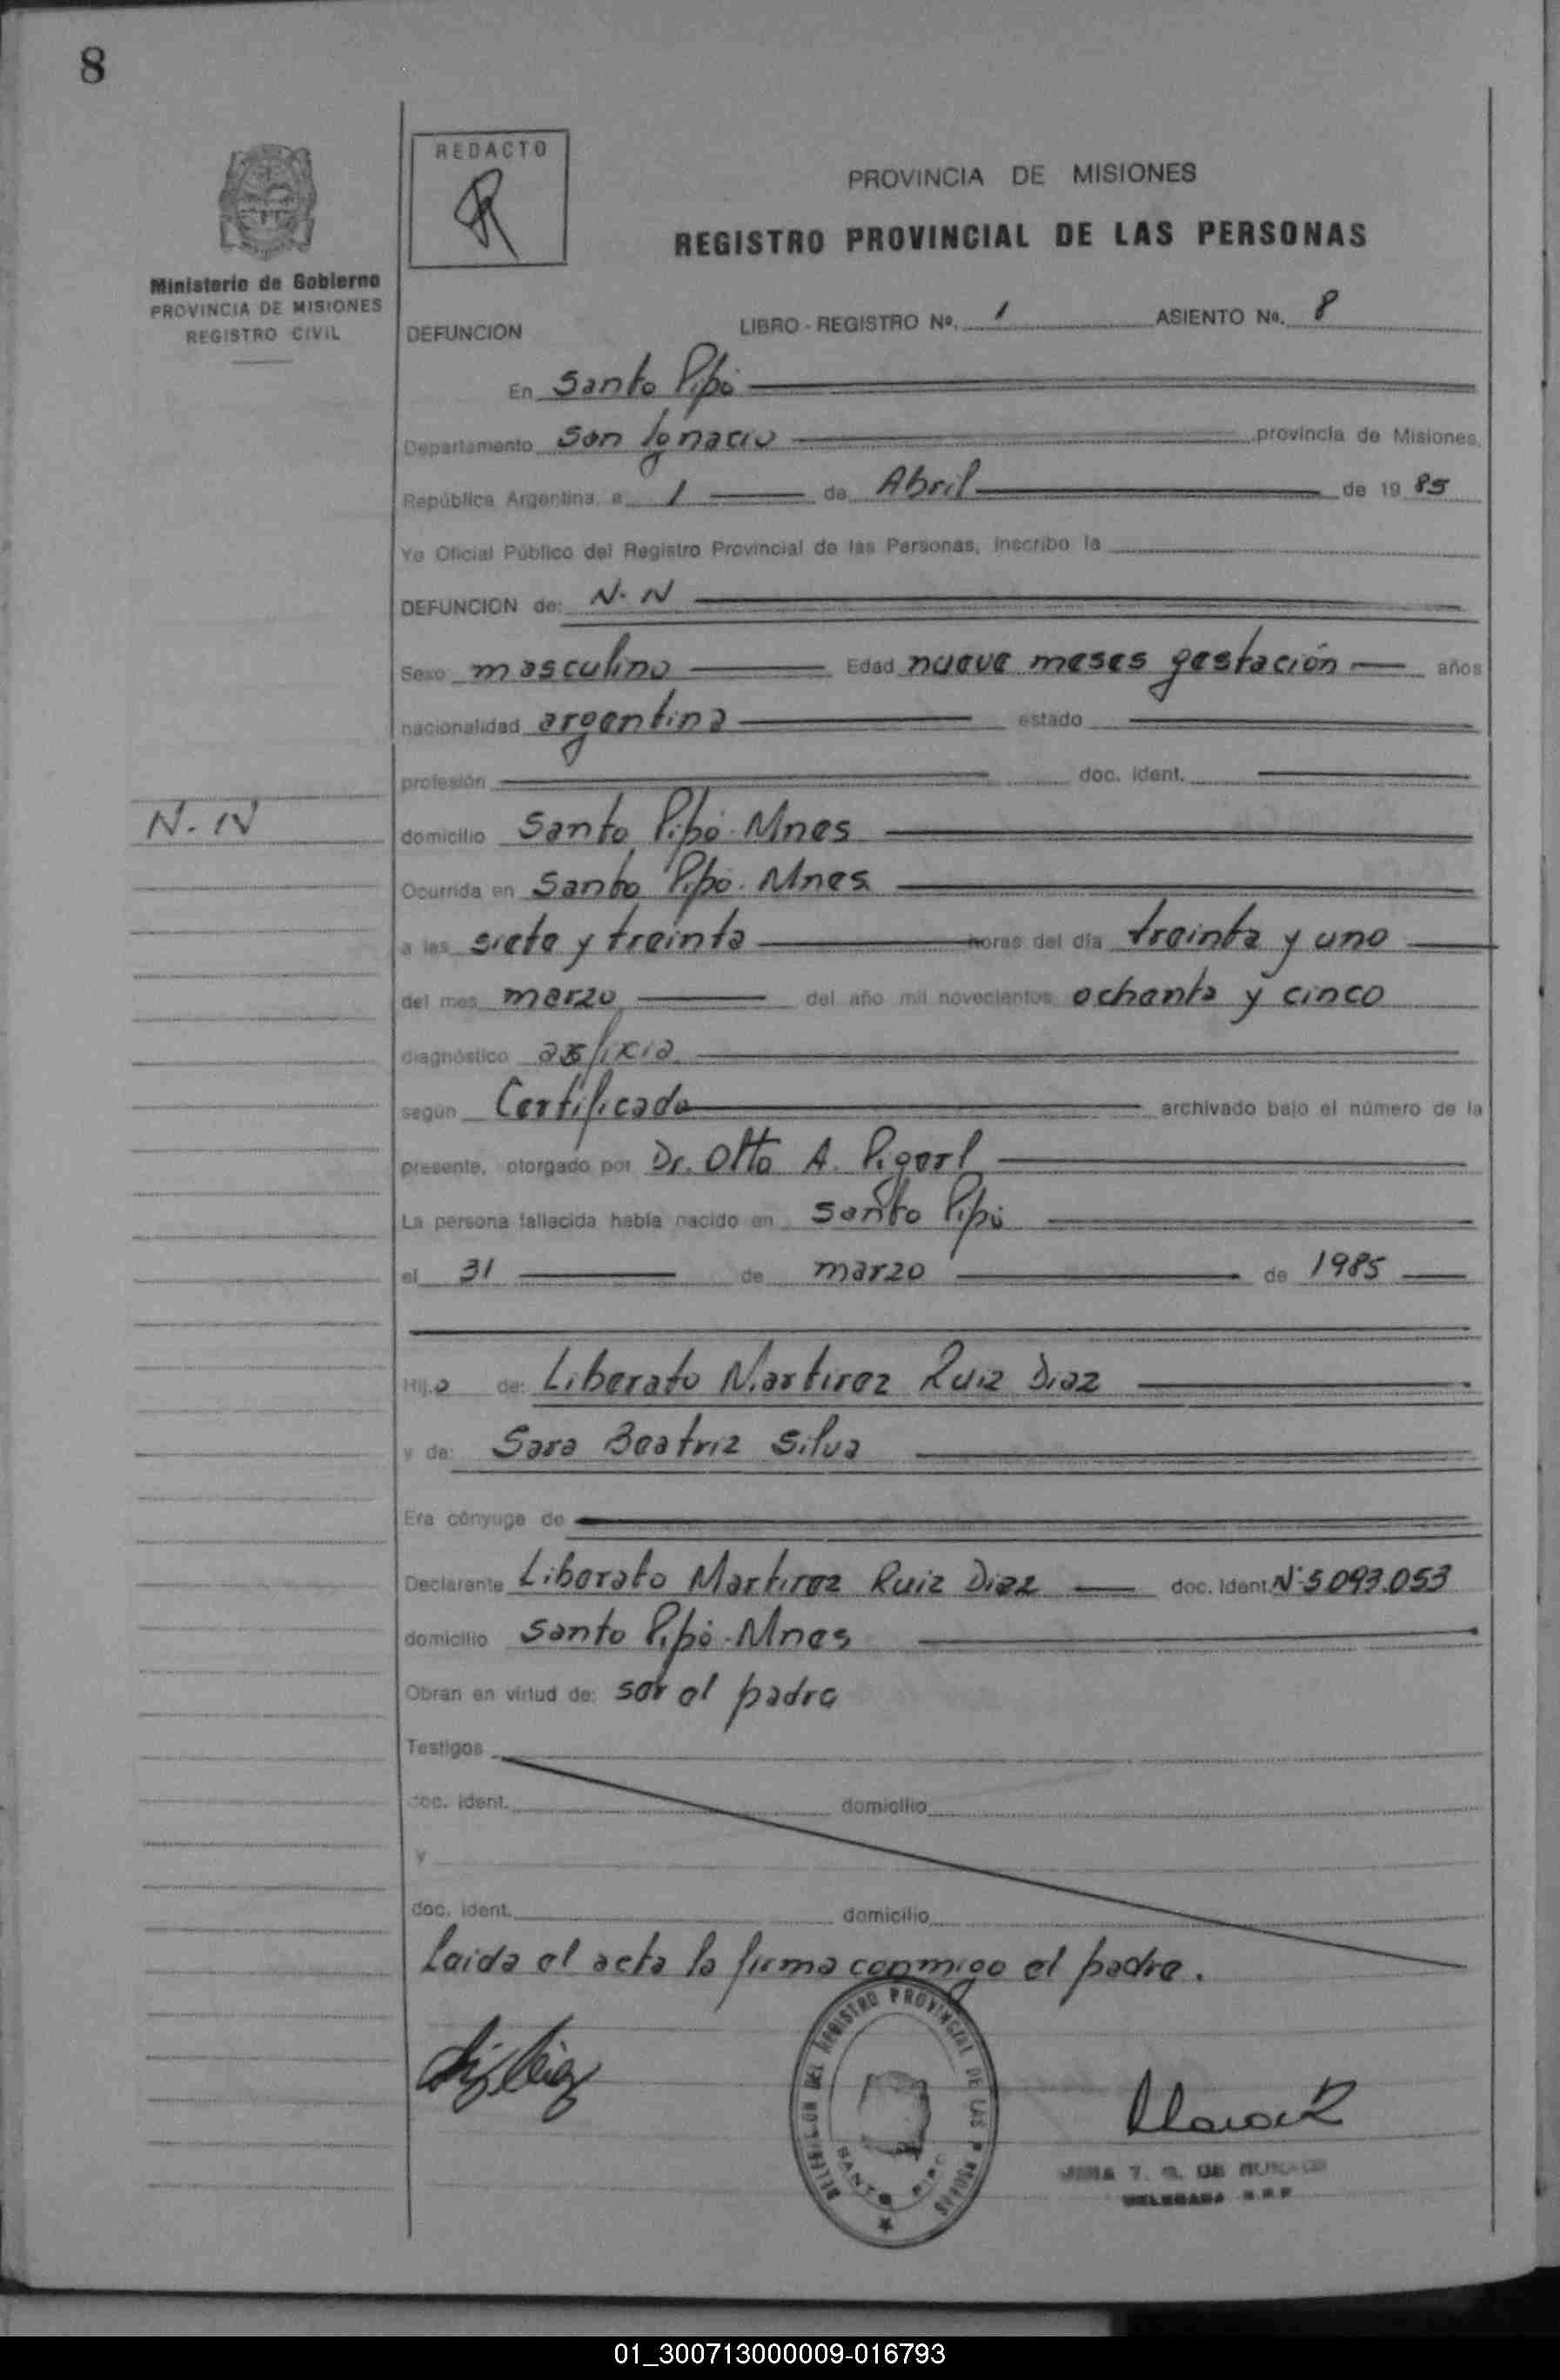 8
REDACTO
PROVINCIA DE MISIONES
REGISTRO PROVINCIAL DE LAS PERSONAS
Ministerio de Gobierno
PROVINCIA DE MISIONES
REGISTRO CIVIL
DEFUNCION LIBRO - REGISTRO Nº. 1 ASIENTO No. 8
En Santo Pipó
Departamento San Ignacio provincia de Misiones,
República Argentina, a 1 de Abril de 19 85
Yo Oficial Público del Registro Provincial de las Personas, inscribo la
DEFUNCION de: N. N
Sexo masculino Edad nueve meses gestación años
nacionalidad argentina estado
profesión doc. ident.
N. N
domicilio Santo Pipó - Mnes
Ocurrida en Santo Pipó. Mnes
a las siete y treinta horas del día treinta y uno
del mes marzo del año mil novecientos ochenta y cinco
diagnóstico asfixia
según Certificado archivado bajo el número de la
presente, otorgado por Dr. Otto A.
La persona fallecida había nacido en Santo Pipó
el 31 de marzo de 1985
Hijo de: Liberato Martirez Ruiz Diaz
y de: Sara Beatriz Silva
Era cónyuge de
Declarante Liberato Martirez Ruiz Diaz doc. Ident. Nº 5093.053
domicilio Santo Pipó - Mnes
Obran en virtud de: ser el padre
Testigos
doc. ident. domicilio
y
doc. ident. domicilio
Leida el acta la firma conmigo el padre.
DELEGACION DEL REGISTRO PROVINCIAL DE LAS PERSONAS
SANTO PIPO
DELEGADA R.P.P
01_300713000009-016793